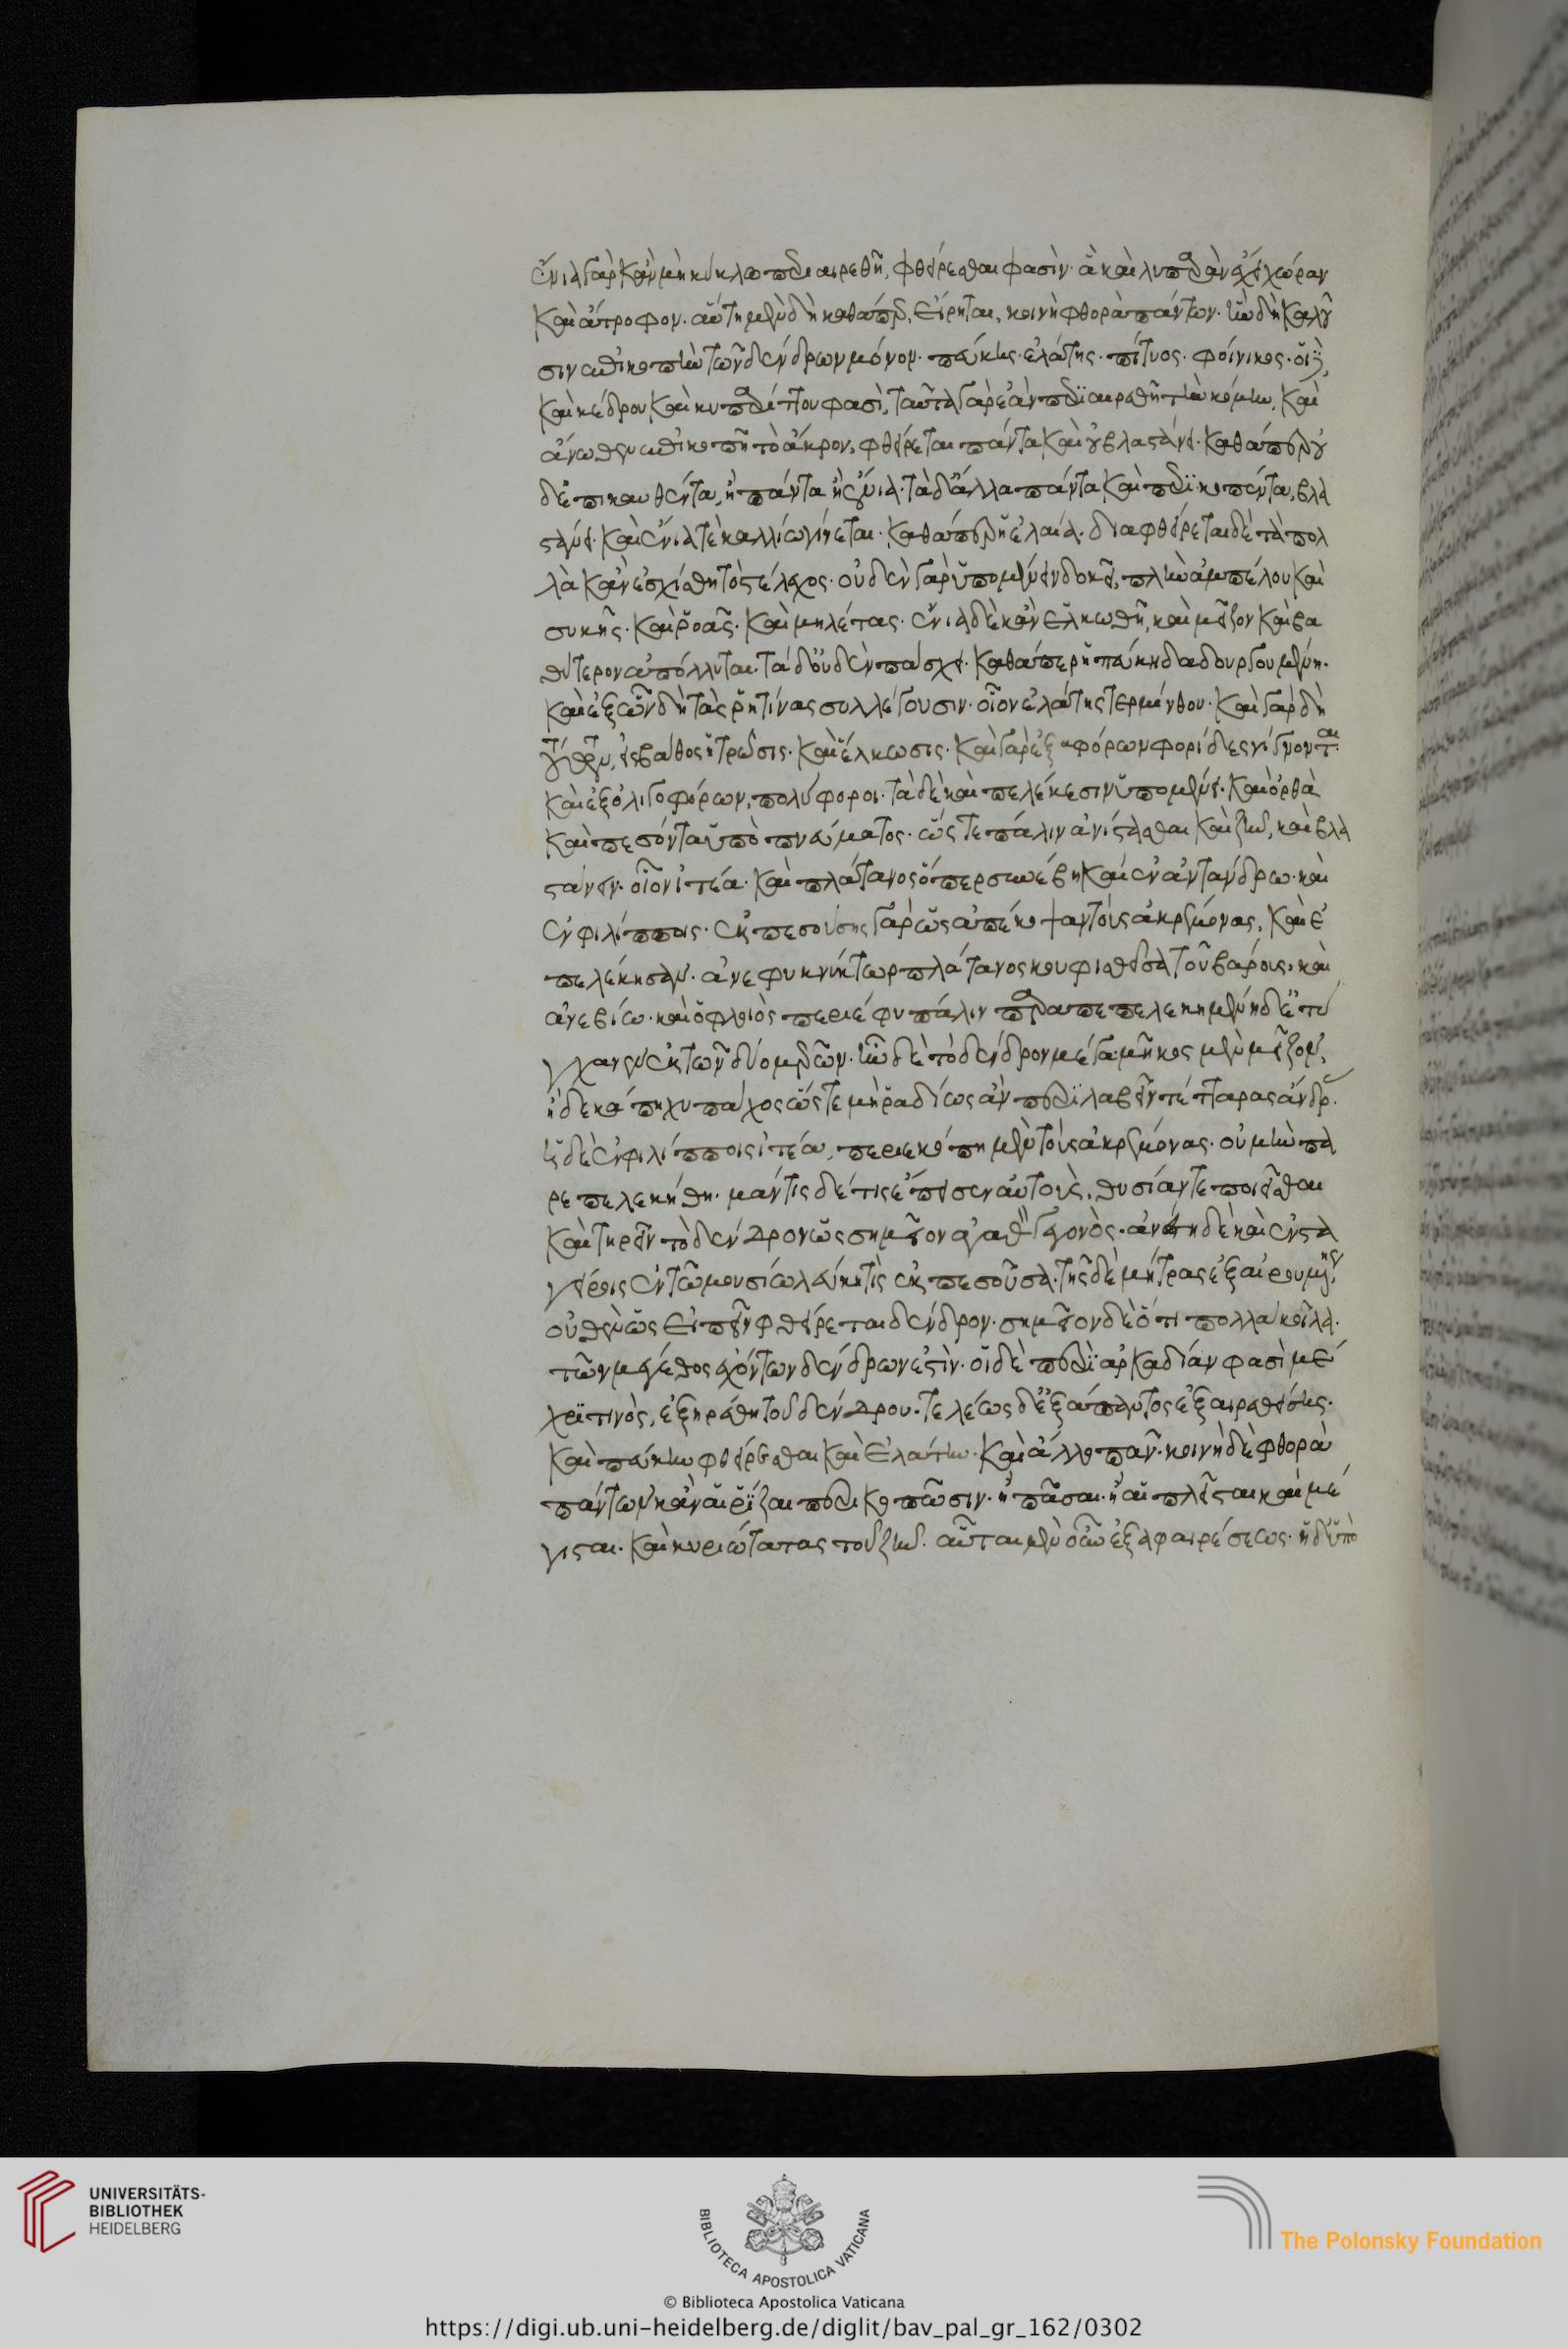 ἔνια γὰρ κἂν μὴ κύκλω περιαιρεθῆ, φθείρεσθαι φασὶν· ἃ καὶ λυπρὰν ἔχει χώραν
καὶ ἄτροφον. αὕτη μὲν δὴ καθάπερ, εἴρηται, κοινὴ φθορὰ πάντων. ἣν δὴ καλοῦ
σιν ἐπικοπὴν τῶν δένδρων μόνον. πεύκης. ἐλάτης. πίτυος. φοίνικος. οἳ δὲ,
καὶ κέδρου, καὶ κυπαρίττου φασὶ, ταῦτα γὰρ ἐὰν περιαιρεθῆ τὴν κόμην, καὶ
ἄνωθεν ἐπικοπῆ τὸ ἄκρον, φθείρεται πάντα καὶ οὐ βλαστάνει. καθάπερ οὐ
δ' ἐπικαυθέντα, ἢ πάντα ἢ ἔνια. τὰ δ' ἄλλα πάντα καὶ περικοπέντα, βλα
στάνει. καὶ ἔνιά τε καλλίω γίνεται. καθάπερ ἡ ἐλαία. διαφθείρεται δὲ τὰ πολ
λὰ κἂν ἐσχίσθη τὸ στέλεχος. οὐδὲν γὰρ ὑπομένειν δοκεῖ, πλὴν ἀμπέλου καὶ
συκῆς. καὶ ῥοᾶς. καὶ μηλέτας. ἔνια δὲ κἂν ἑλκωθῆ, καὶ μεῖζον καὶ βα
θύτερον ἀπόλλυται. τὰ δ' οὐδὲν πάσχει. καθάπερ ἡ πεύκη δαδουργουμένη.
καὶ ἐξ ὧν δὴ τὰς ῥητίνας συλλέγουσιν. οἷον ἐλάτης τερμίνθου. καὶ γὰρ δὴ
εἰς βάθος ἡ τρῶσις. καὶ ἕλκωσις. καὶ γὰρ ἐξ ἀφόρων φορίδες γίγνονται.
καὶ ἐξ ὀλιγοφόρων, πολύφοροι. τὰ δὲ καὶ πελέκεσιν ὑπομένει. καὶ ὀρθὰ
καὶ πεσόντα ὑπὸ πνεύματος. ὥστε πάλιν ἀνίστασθαι καὶ ζῆν, καὶ βλα
στάνειν. οἷον ἰτέα. καὶ πλάτανος ὅπερ συνέβη καὶ ἐν ἀντάνδρω. καὶ
ἐν φιλίπποις. ἐκπεσούσης γὰρ ὡς ἀπέκοψαν τοὺς ἀκρεμόνας, καὶ ἐ
πελέκησαν. ἀνεφύη νύκτωρ πλάτανος κουφισθεῖσα τοῦ βάρους. καὶ
ἀνεβίω. καὶ ὁ φλοιὸς περιέφυ πάλιν παραπεπελεκημένη δ' ἐτύ
γχανεν ἐκ τῶν δύο μερῶν. ἦν δὲ τὸ δένδρον μέγα μῆκος μὲν μεῖζον,
ἢ δεκάπηχυ πάχος ὥστε μὴ ῥαδίως ἂν περιλαβεῖν τέτταρας ἄνδρας.
ἡ δὲ ἐν φιλίπποις ἰτέα, περιεκόπη μὲν τοὺς ἀκρεμόνας. οὐ μὴν πα
ρεπελεκήθη. μάντις δέ τις ἔπεισεν αὐτοὺς, θυσίαν τε ποιεῖσθαι
καὶ τηρεῖν τὸ δένδρον ὡς σημεῖον ἀγαθὸν γεγονὸς. ἀνέστη δὲ καὶ ἐν στα
γείροις ἐν τῶ μουσίω λεύκη τὶς ἐκπεσοῦσα. τῆς δὲ μήτρας ἐξαιρουμένης,
οὐθὲν ὡς εἰπεῖν φθείρεται δένδρον. σημεῖον δὲ ὅτι πολλὰ κοῖλα.
τῶν μέγεθος ἐχόντων δένδρων ἐστὶν. οἱ δὲ περὶ ἀρκαδίαν φασὶ μέ
χρι τινὸς, ἐξηρέθη τοῦ δένδρου. τελέως δ' ἐξ ἅπαντος ἐξαιρεθείσης.
καὶ πεύκην φθείρεσθαι καὶ ἐλάτην. καὶ ἄλλο πᾶν. κοινὴ δὲ φθορὰ
πάντων κἂν αἱ ῥίζαι περικοπῶσιν. ἢ πᾶσαι. ἢ αἱ πλεῖσται καὶ μέ
γισται. καὶ κυριώταται τοῦ ζῆν. αὗται μὲν οὖν ἐξ ἀφαιρέσεως. ἡ δ' ὑπὸ
UNIVERSITÄTS-
BIBLIOTHEK
HEIDELBERG
BIBLIOTECA APOSTOLICA VATICANA
The Polonsky Foundation
© Biblioteca Apostolica Vaticana
https://digi.ub.uni-heidelberg.de/diglit/bav_pal_gr_162/0302